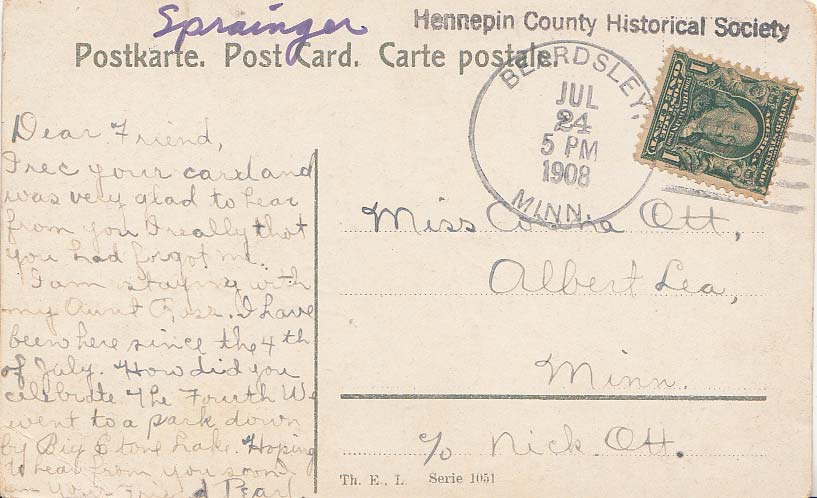 Sprainger
Hennepin County Historical Society
Postkarte. Post Card. Carte postale.
BEARDSLEY.
JUL
24
5 PM
1908
MINN.
1 1
Dear Friend,
I rec your card and
was very glad to hear
from you I really that
you had forgot me.
I am staying with
my Aunt I have
been here since the 4th
of July. How did you
celebrate The Fourth We
went to a park down
by Big Stone Lake. Hoping
to hear from you soon
am your Friend Pearl.
Miss Ott,
Albert Lea,
Minn.
c/o Nick Ott.
Th. E. L. Serie 1051